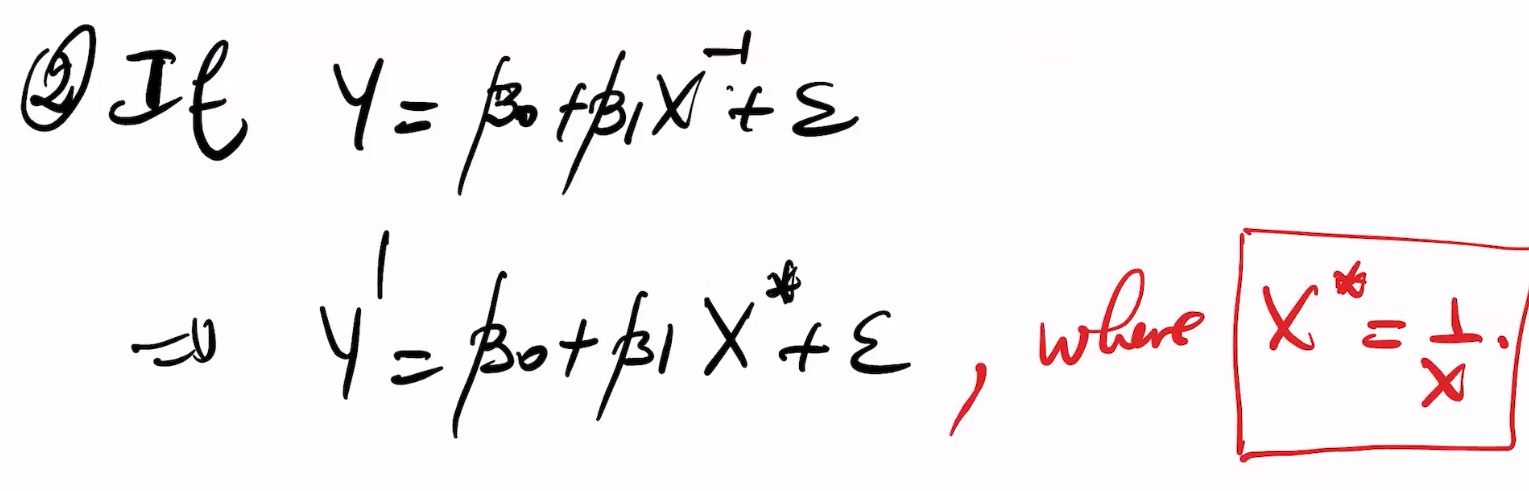 ② If Y = β₀ + β₁X⁻¹ + ε
⇒ Y¹ = β₀ + β₁ X* + ε , where X* = 1/X.